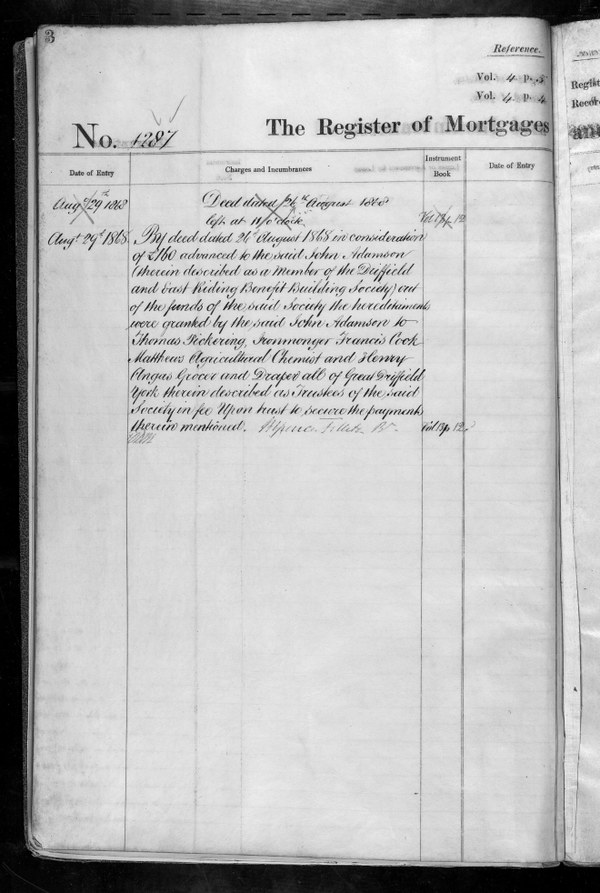 3
Reference.
Vol. 4 p. 5
Vol. 4 p. 4
No. 1287
The Register of Mortgages
Date of Entry
Charges and Incumbrances
Instrument Book
Date of Entry
Augt 29th 1868
Deed dated 26th August 1868
left at 11 o'clock
Augt 29th 1868.
By deed dated 26th August 1868 in consideration
of £160 advanced to the said John Adamson
(therein described as a Member of the Driffield
and East Riding Benefit Building Society) out
of the funds of the said Society the hereditaments
were granted by the said John Adamson to
Thomas Pickering, Ironmonger Francis Cook
Matthews Agricultural Chemist and Henry
Angas Grocer and Draper all of Great Driffield
York therein described as Trustees of the said
Society in fee Upon trust to secure the payments
therein mentioned.
Vol 13 p 12
Regist
Record
and